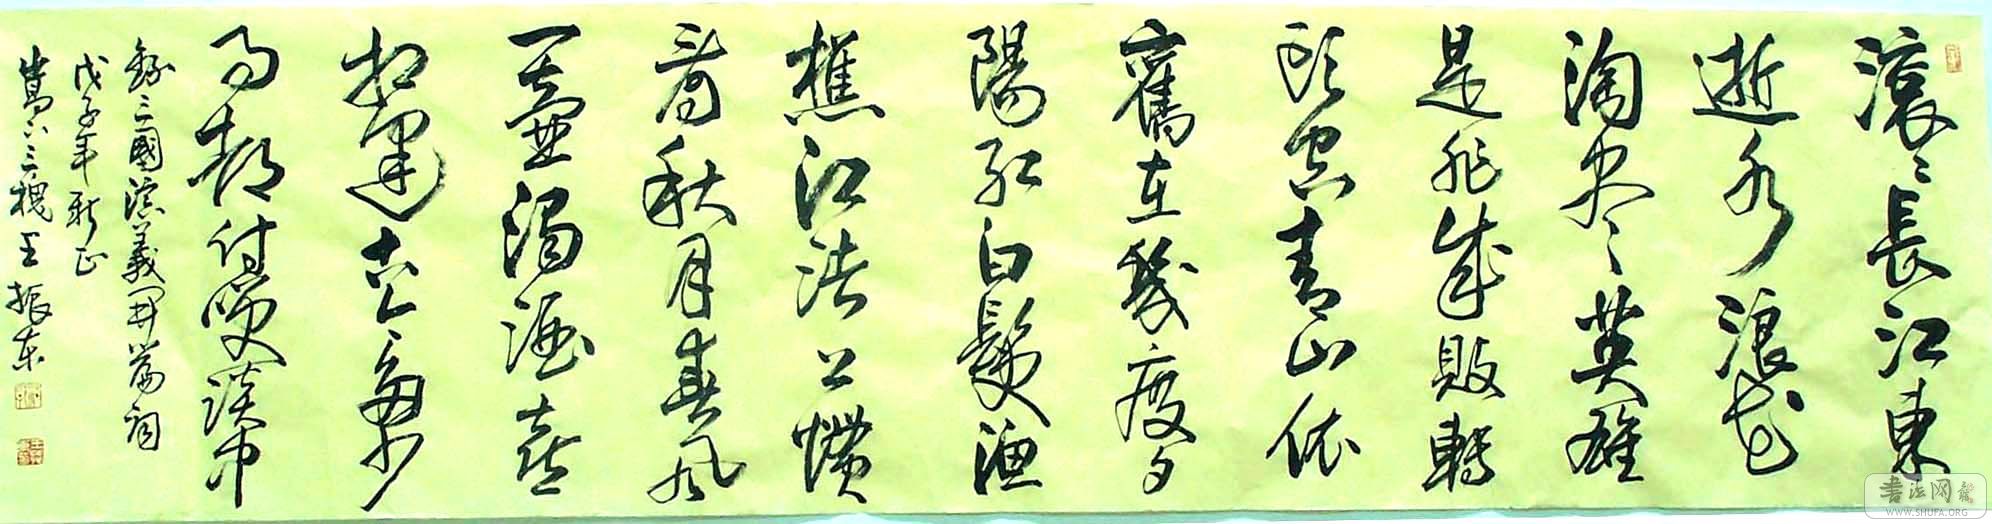 滚〻長江東
逝水浪花
淘尽英雄
是非成敗轉
頭空青山依
舊在幾度夕
陽紅白髮漁
樵江渚上慣
看秋月春風
一壺濁酒喜
相逢古今多少
事都付笑談中
錄三國演義開篇詞
戊子年新正
嵩下三槐王振东
书法网
WWW.SHUFA.ORG